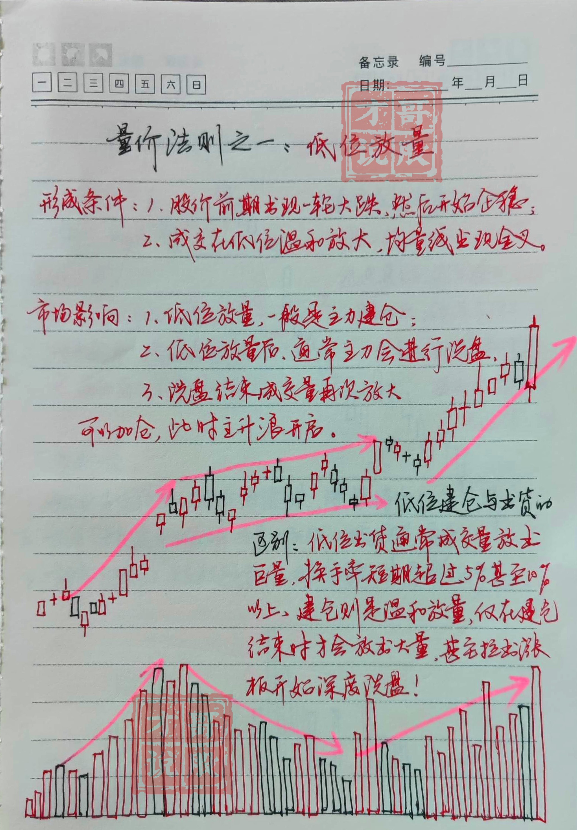 备忘录 编号
一 二 三 四 五 六 日
日期: 年 月 日
量价法则之一：低位放量
形成条件：1、股价前期出现一轮大跌，然后开始企稳；
2、成交在低位温和放大，均量线出现金叉。
市场影响：1、低位放量，一般是主力建仓；
2、低位放量后，通常主力会进行洗盘，
3、洗盘结束成交量再次放大
可以加仓，此时主升浪开启。
低位建仓与出货的
区别：低位出货通常成交量放出
巨量，换手率短期超过5%甚至10%
以上，建仓则是温和放量，仅在建仓
结束时才会放出大量，甚至拉出涨
板开始深度洗盘！